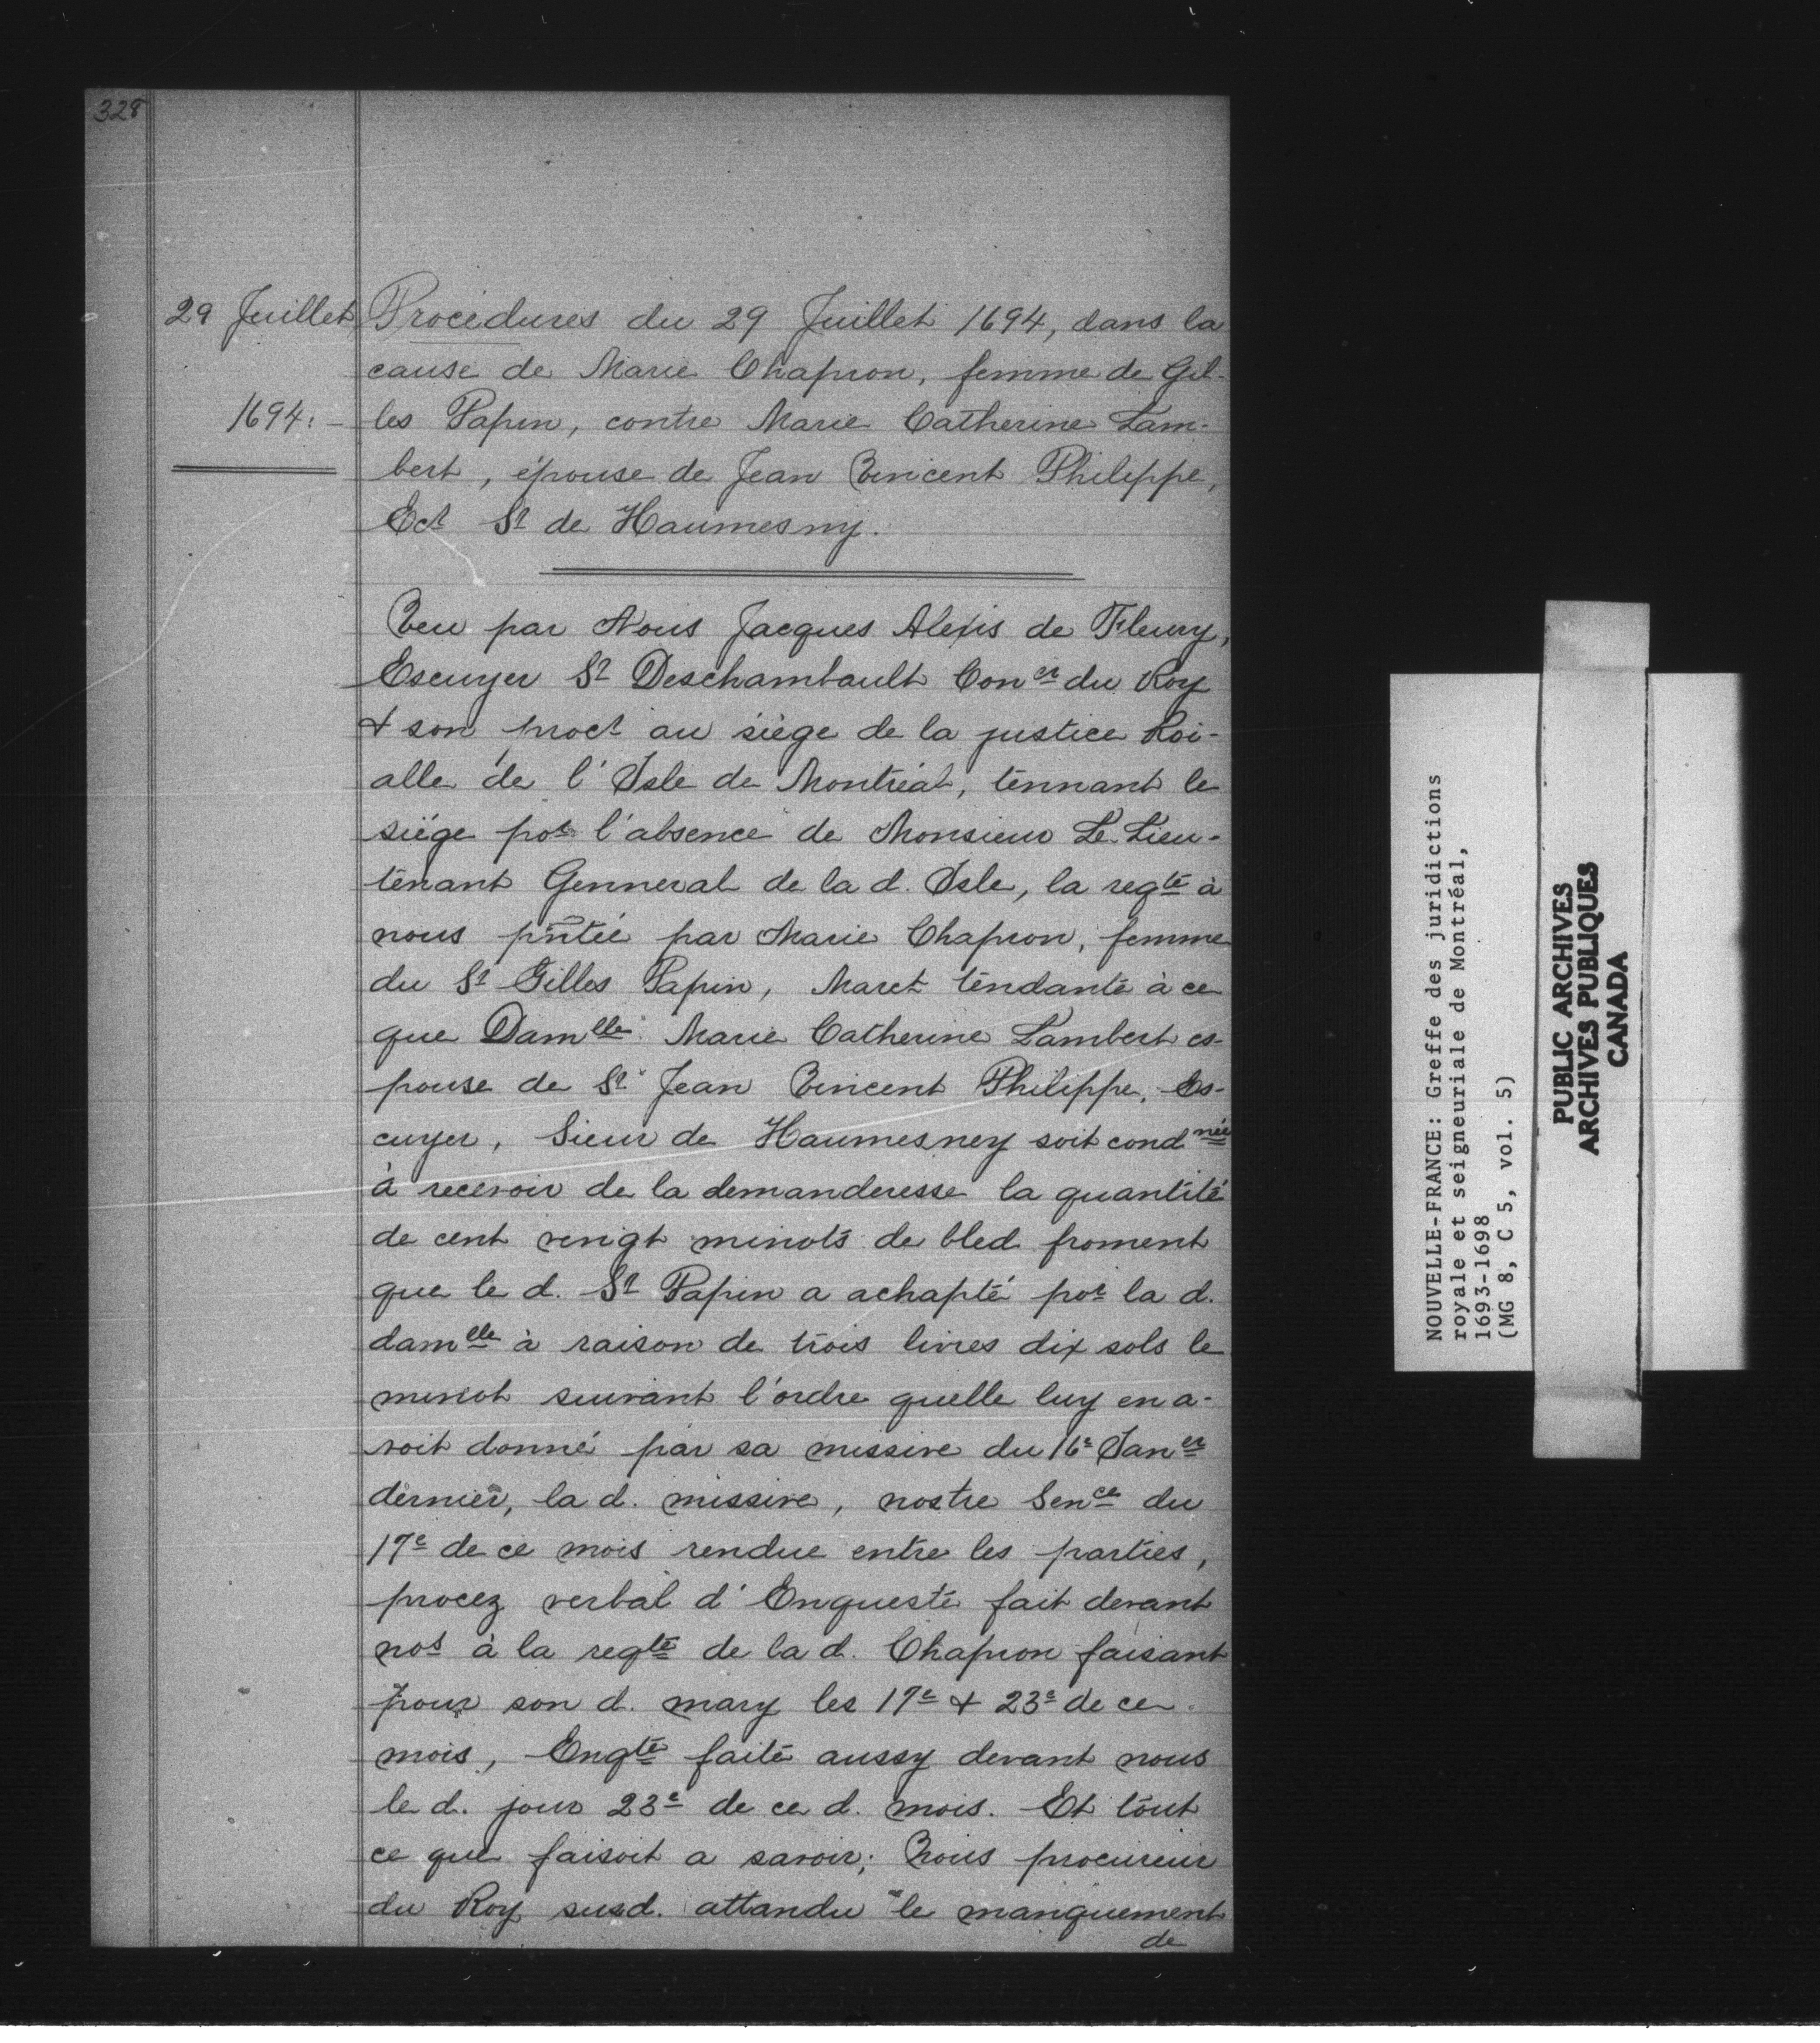 328
29 Juillet
1694. –
Procédures du 29 Juillet 1694, dans la
cause de Marie Chapron, femme de Gil-
les Papin, contre Marie Catherine Lam-
bert, épouse de Jean Vincent Philippe,
Ecr Sr de Haumesny.
Veu par Nous Jacques Alexis de Fleury,
Escuyer Sr Deschambault Coner du Roy
& son procr au siège de la justice Roi-
alle de l'Isle de Montréal, tennant le
siége por l'absence de Monsieur Le Lieu-
tenant Genneral de la d. Isle, la reqte à
nous pñtée par Marie Chapron, femme
du Sr Gilles Papin, Marct tendante à ce
que Damlle Marie Catherine Lambert es-
pouse de Sr Jean Vincent Philippe, Es-
cuyer, Sieur de Haumesney soit condnée
à recevoir de la demanderesse la quantité
de cent vingt minots de bled froment
que le d. Sr Papin a achapté por la d.
damlle à raison de trois livres dix sols le
minot suivant l'ordre quelle luy en a-
voit donné par sa missive du 16e Janer
dernier, la d. missive, nostre Sence du
17e de ce mois rendue entre les parties,
procez verbal d'Enqueste fait devant
nos à la reqte de la d. Chapron faisant
pour son d. mary les 17e & 23e de ce
mois, Enqte faite aussy devant nous
le d. jour 23e de ce d. mois. Et tout
ce que faisoit a savoir; Nous procureur
du Roy susd. attandu le manquement
de
NOUVELLE-FRANCE: Greffe des juridictions
royale et seigneuriale de Montréal,
1693-1698
(MG 8, C 5, vol. 5)
PUBLIC ARCHIVES
ARCHIVES PUBLIQUES
CANADA